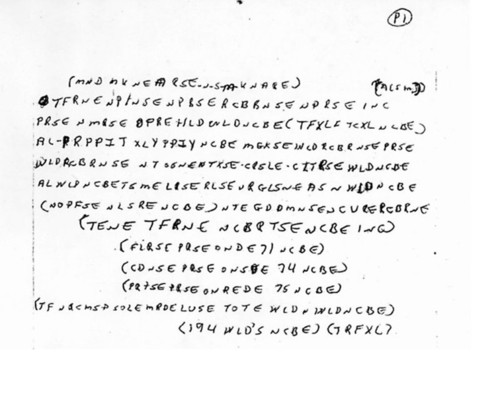 P1
(MND MKNEARSE-N-S-M-KNARE) (ACSM)
TFRNENPINSENPBSERCBBNSENPRSEINC
PRSENMRSEOPREHLDWLDNCBE(TFXLF TCXL NCBE)
AL-PRPPIT XLYPPIY NCBE MGKSE WLDRCBRNSE PRSE
WLDRCBRNSE NTOSNENTXSE-CRSLE-CITRSE WLDNCBE
ALWLPNCBETSMELRSERLSEURGLSNEASNWLDNCBE
(NOPFSENLSRENCBE) NTEGDDMNSENCURERCBRNE
(TENE TFRNE NCBRTSENCBEING)
(FIRSEPRSEONDE71NCBE)
(CDNSEPRSEONSDE 74 NCBE)
(PRTSEPRSEONREDE 75 NCBE)
(TFNQCMSPSOLEMRDELUSE TOTE WLDNWLDNCBE)
(194 WLD'S NCBE) (TRFXL)